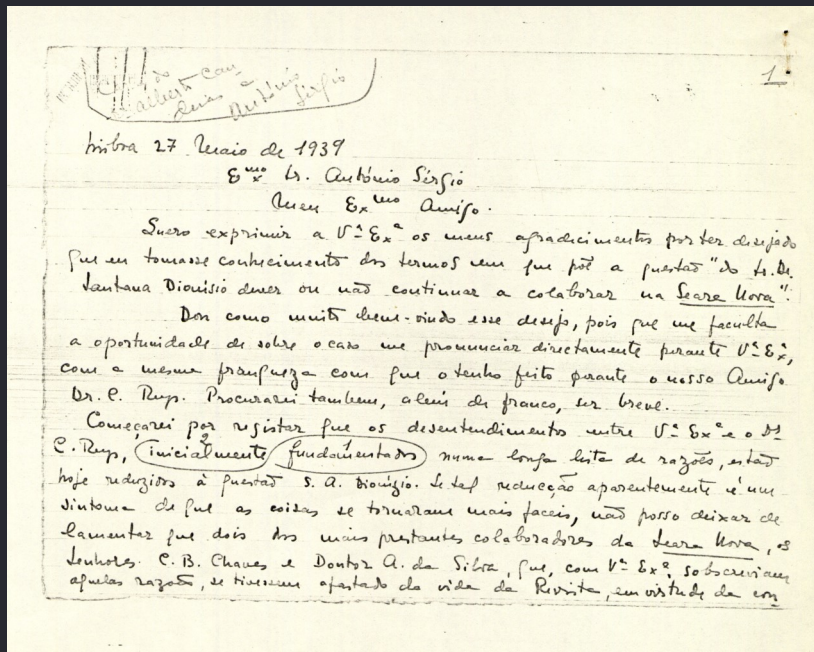 1
Carta do
Adalberto Can
deias a
António
Sérgio
Coimbra 27 Maio de 1939
Exmo Sr. António Sérgio
Meu Exmo Amigo.
Quero exprimir a Vª Exª os meus agradecimentos por ter desejado
que eu tomasse conhecimento dos termos em que põe a questão "do Sr. Dr.
Santana Dionísio dever ou não continuar a colaborar na Seara Nova".
Dou como muito bem-vindo esse desejo, pois que me faculta
a oportunidade de sobre o caso me pronunciar directamente perante Vª Exª,
com a mesma franqueza com que o tenho feito perante o nosso Amigo
Dr. C. Rup. Procurarei tambem, alem de franco, ser breve.
Começarei por registar que os desentendimentos entre Vª Exª e o Dr
C. Rup, inicialmente fundamentados numa longa lista de razões, estão
hoje reduzidos à questão S. A. Dionízio. Se tal reducção aparentemente é um
sintoma de que as coisas se tornaram mais faceis, não posso deixar de
lamentar que dois dos mais prestantes colaboradores da Seara Nova, os
Senhores C. B. Chaves e Doutor A. da Silva, que, com Vª Exª, sobscreviam
aquelas razões, se tivessem afastado da vida da Revista, em virtude da con